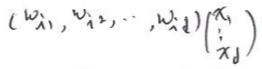 (w_{i1}, w_{i2}, ..., w_{id}) \begin{pmatrix} x_1 \\ \vdots \\ x_d \end{pmatrix}